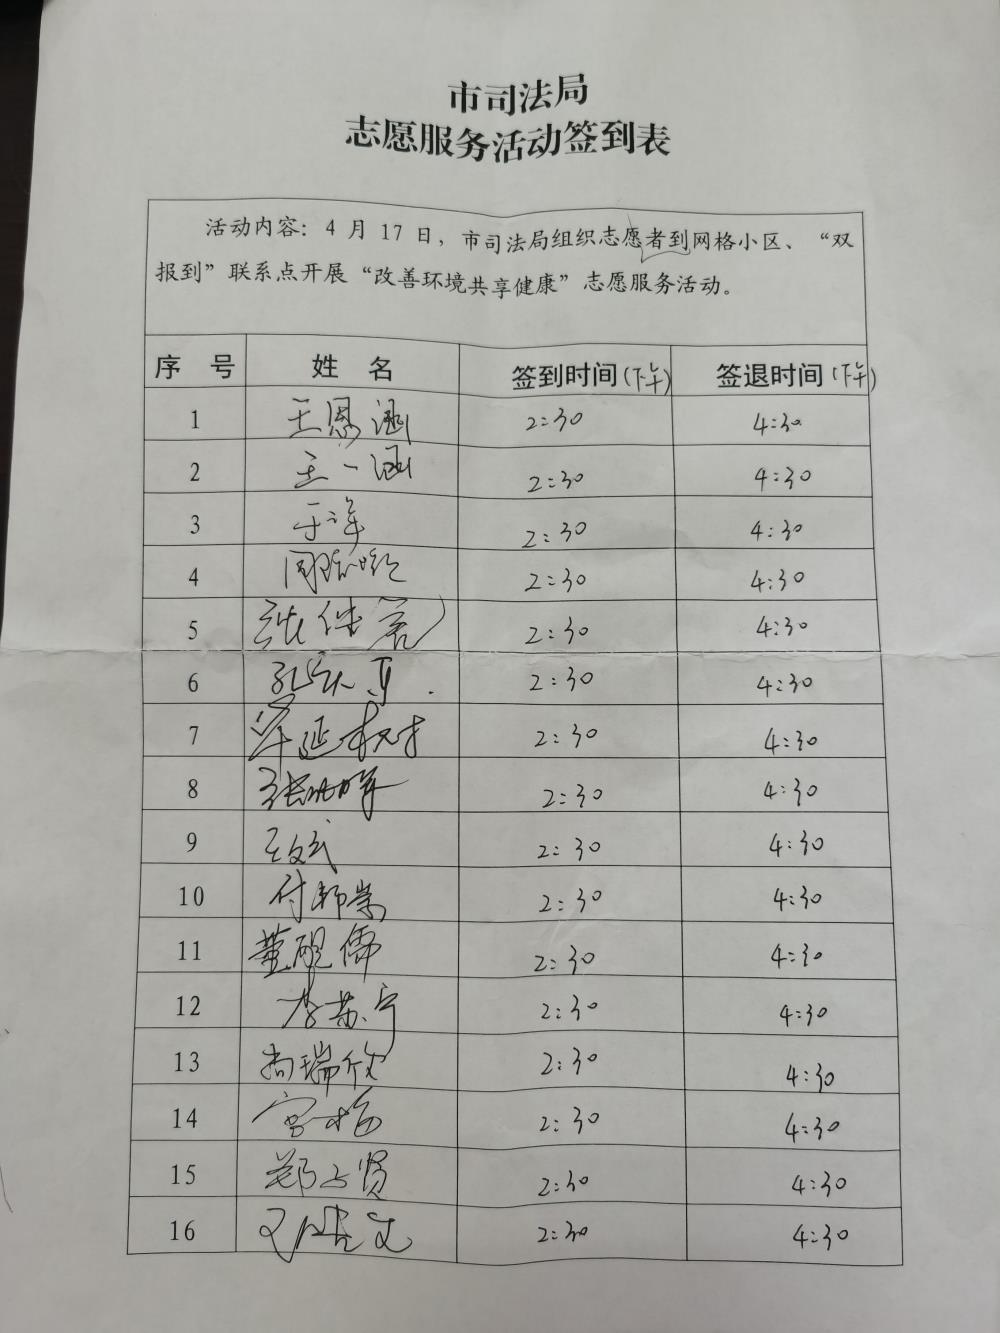 市司法局
志愿服务活动签到表
活动内容：4月17日，市司法局组织志愿者到网格小区、“双
报到”联系点开展“改善环境共享健康”志愿服务活动。
序号 姓名 签到时间(下午) 签退时间(下午)
1 王恩涵 2:30 4:30
2 王一涵 2:30 4:30
3 于洋 2:30 4:30
4 2:30 4:30
5 2:30 4:30
6 2:30 4:30
7 2:30 4:30
8 2:30 4:30
9 2:30 4:30
10 2:30 4:30
11 2:30 4:30
12 李苏宁 2:30 4:30
13 尚瑞欣 2:30 4:30
14 宫梅 2:30 4:30
15 2:30 4:30
16 2:30 4:30